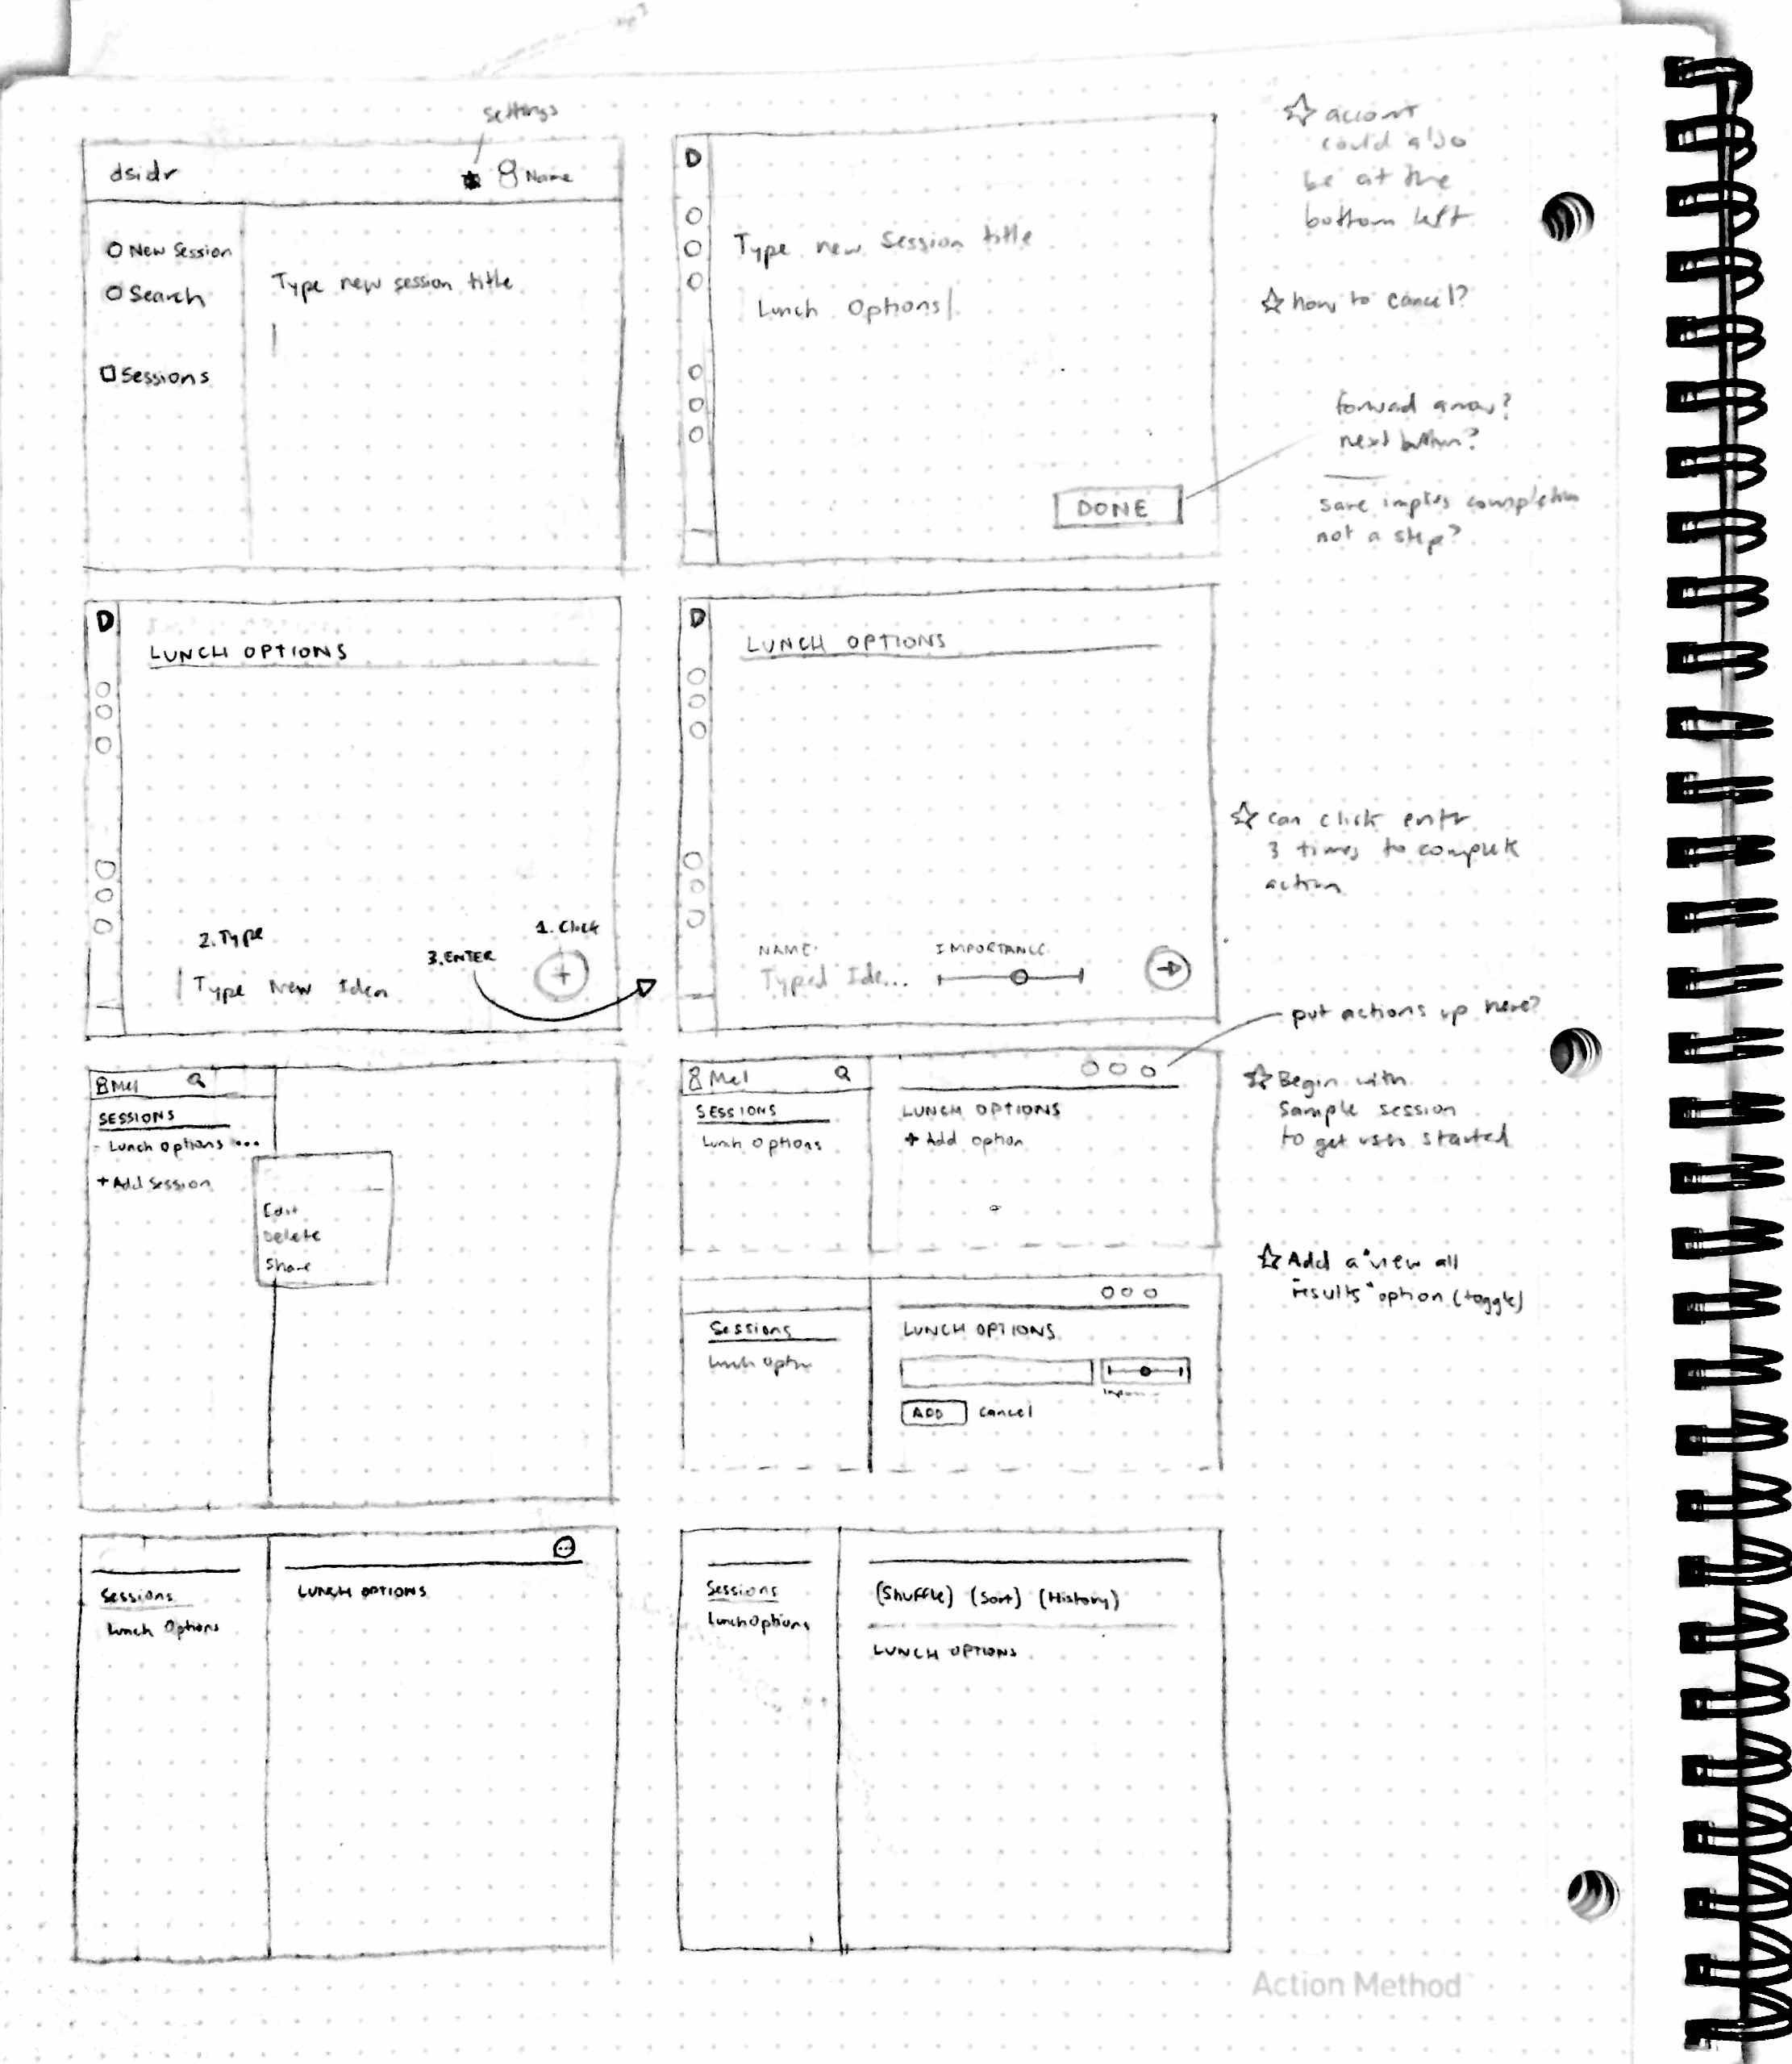 settings
dsidr
Name
New Session
Search
Sessions
Type new session title
D
Type new Session title
Lunch Options
DONE
☆ account
could also
be at the
bottom left
☆ how to cancel?
forward arrow?
next button?
save implies completion
not a step?
D
LUNCH OPTIONS
2. Type
Type New Idea
3. ENTER
1. Click
+
D
LUNCH OPTIONS
NAME
Typed Ide...
IMPORTANCE
☆ can click entr
3 times to complete
action
put actions up here?
Mel
SESSIONS
- Lunch Options ...
+ Add Session
Edit
Delete
Share
Mel
SESSIONS
Lunch Options
LUNCH OPTIONS
+ Add option
☆ Begin with
sample session
to get user started
☆ Add a "view all
results" option (toggle)
Sessions
Lunch Option
LUNCH OPTIONS
ADD
Cancel
Sessions
Lunch Options
LUNCH OPTIONS
Sessions
Lunch Options
(Shuffle) (Sort) (History)
LUNCH OPTIONS
Action Method